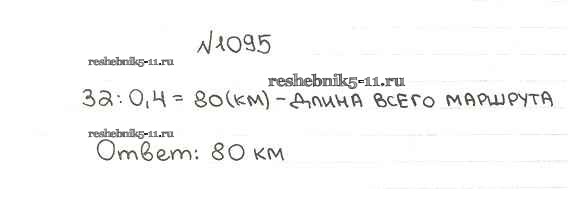 №1095
reshebnik5-11.ru
reshebnik5-11.ru
32:0,4=80(км)-длина всего маршрута
reshebnik5-11.ru
Ответ: 80 км